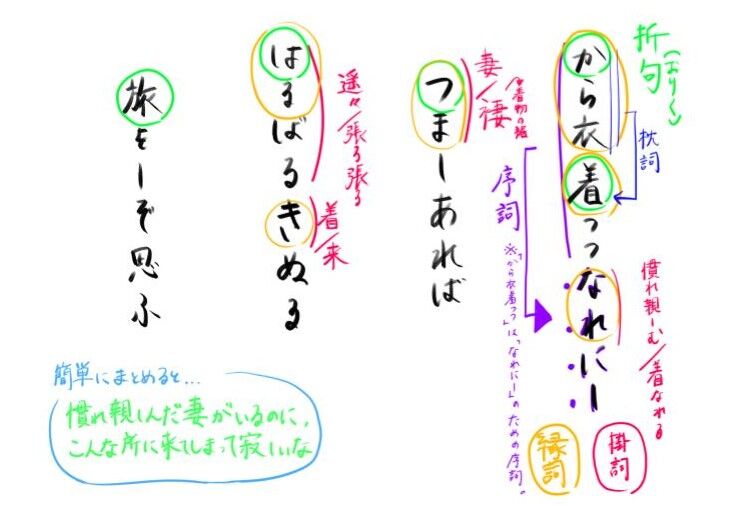 折句(おりく)
から衣
着つつなれにし
枕詞
序詞
※「から衣着つつ」は、「なれにし」のための序詞。
慣れ親しむ/着なれる
掛詞
縁詞
つましあれば
妻/褄
着物の裾
はるばるきぬる
遥々/張る張る
着/来
旅をしぞ思ふ
簡単にまとめると...
慣れ親しんだ妻がいるのに、
こんな所に来てしまって寂しいな